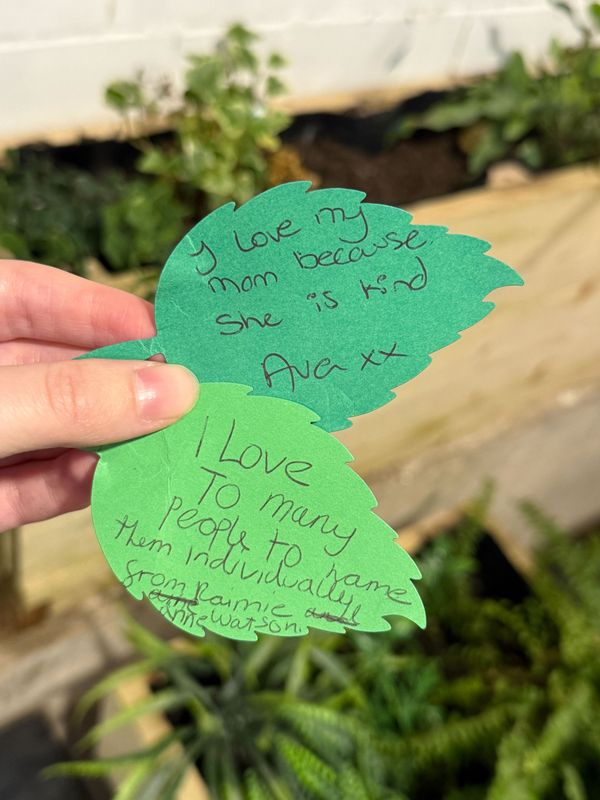 I Love my
mom because
She is kind
Ava xx
I Love
To many
People to name
them individually
from Raimie
Anne Watson